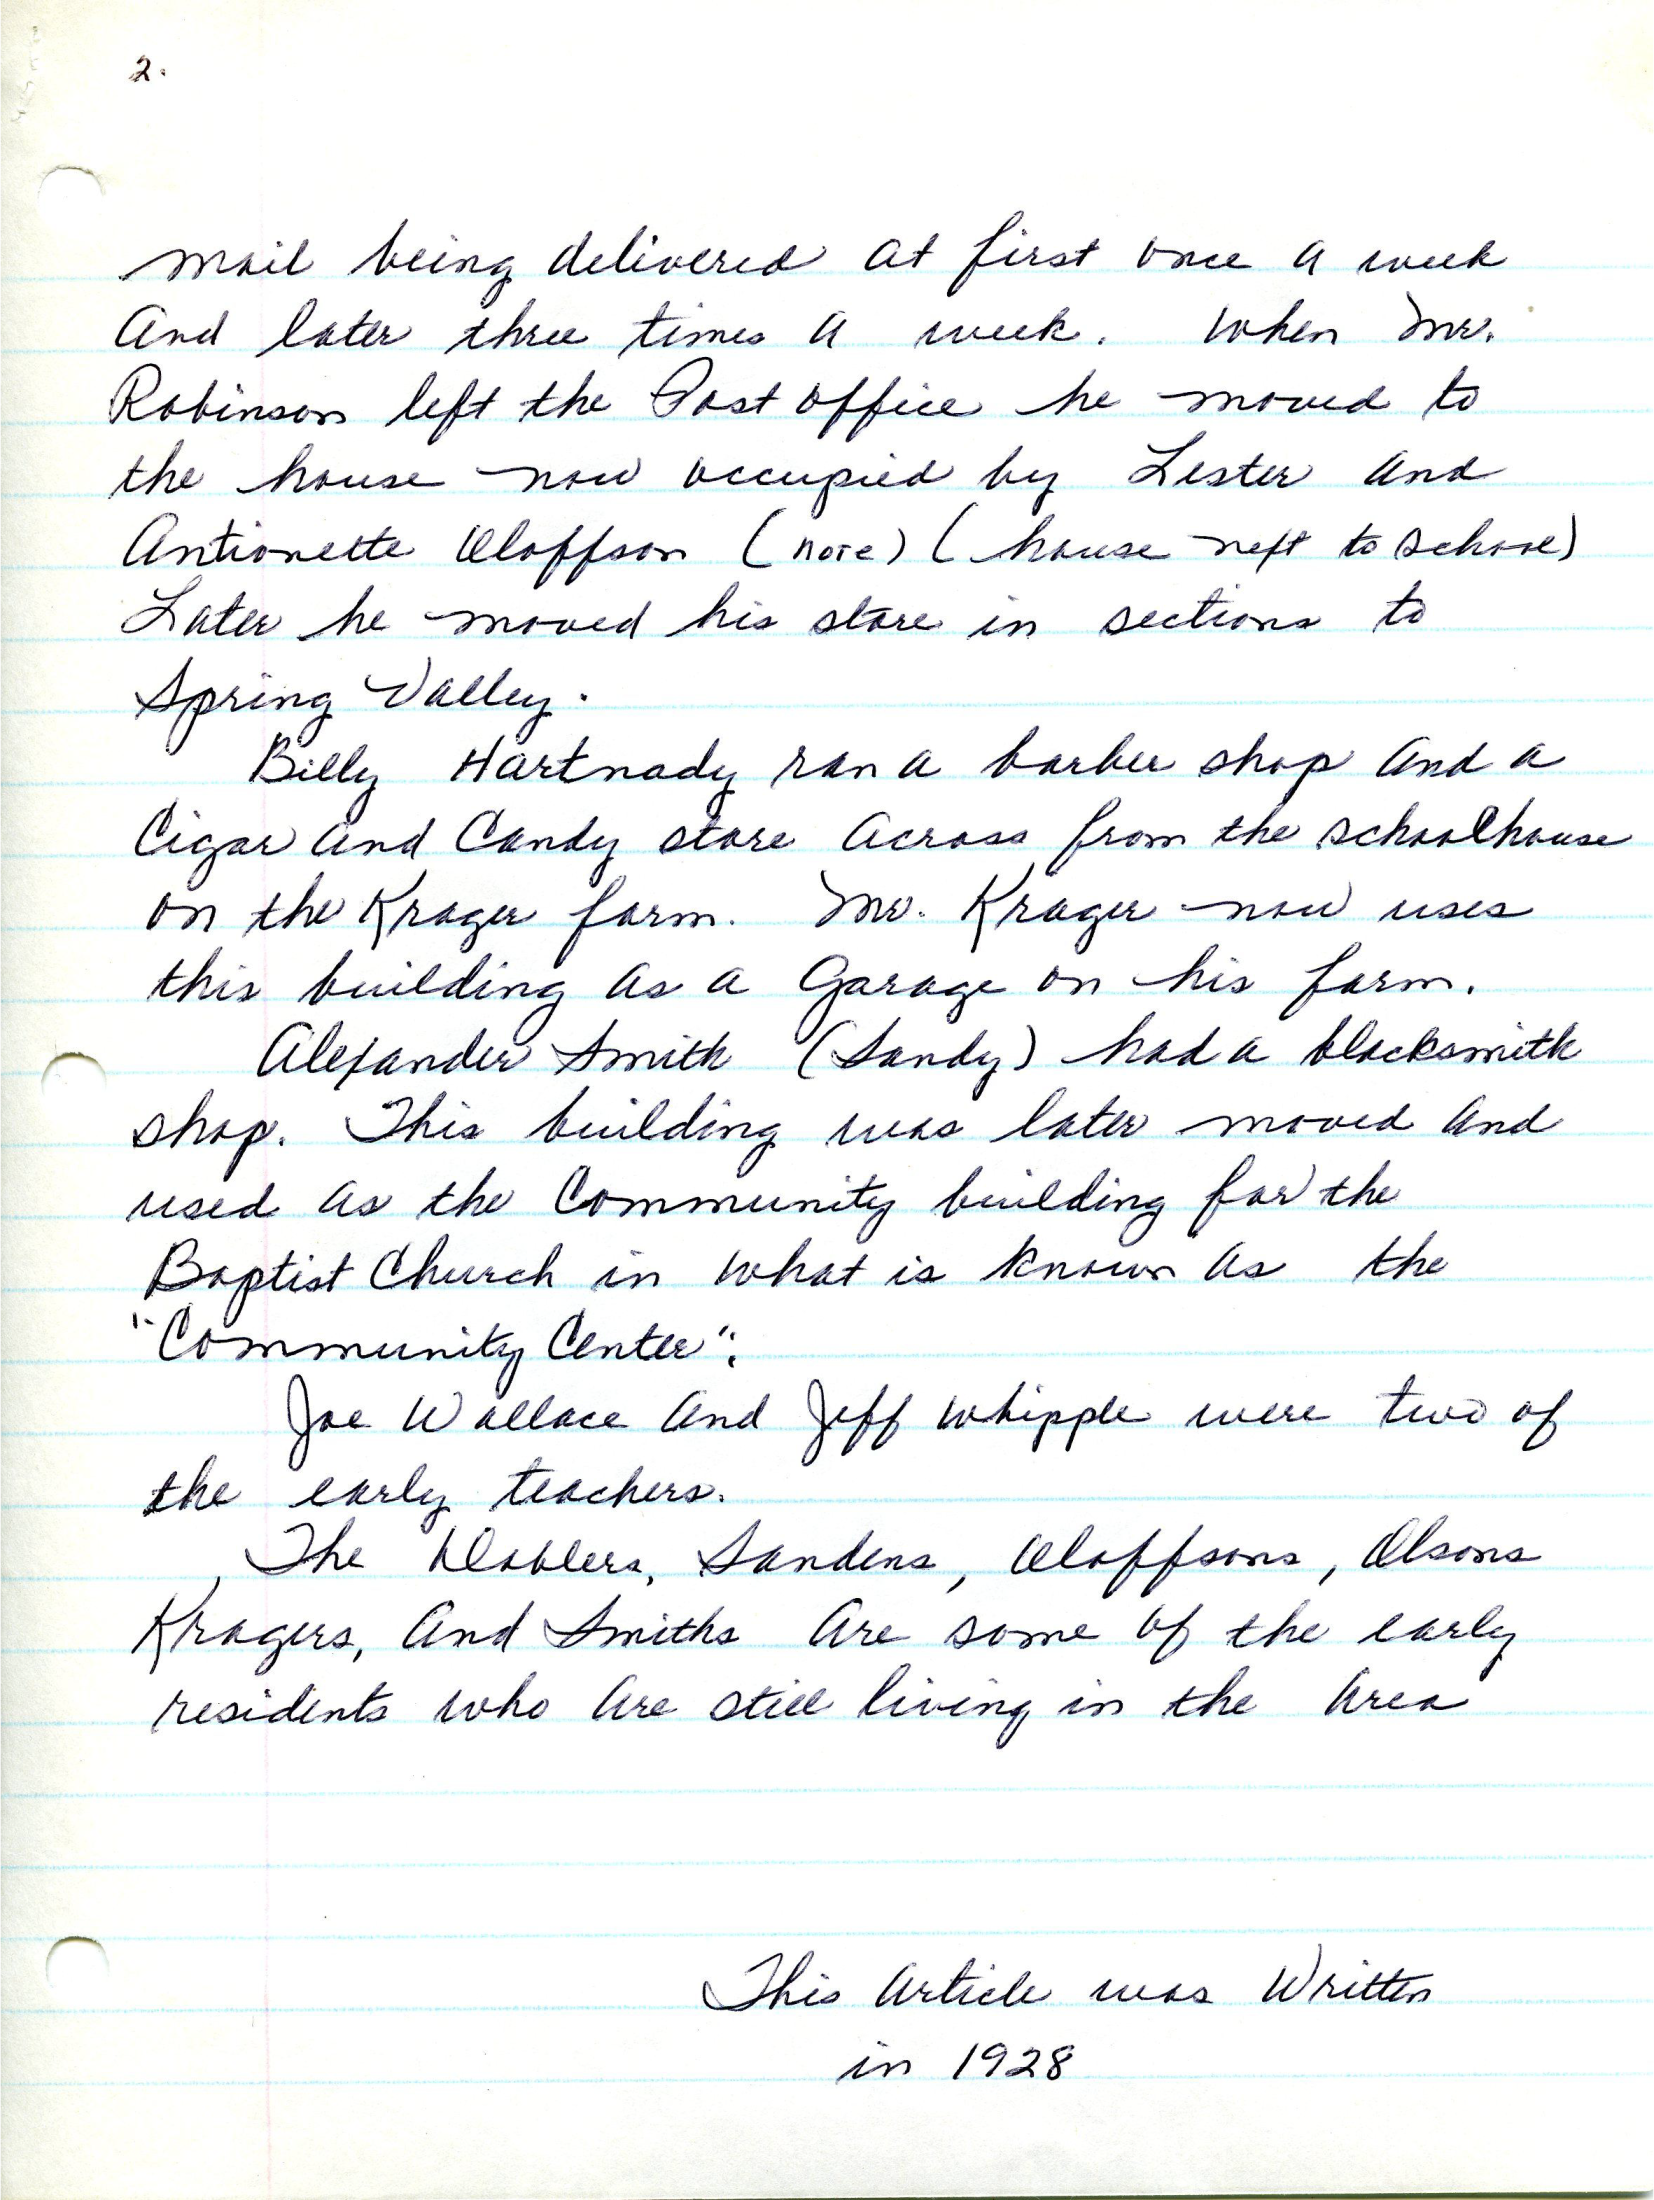 2.
mail being delivered at first once a week
And later three times a week. When Mr.
Robinson left the Post office he moved to
the house now occupied by Lester and
Antionette Oloffson (note) (house next to school)
Later he moved his store in sections to
Spring Valley.
Billy Hartnady ran a barber shop and a
Cigar and Candy store across from the schoolhouse
on the Krager farm. Mr. Krager now uses
this building as a Garage on his farm.
Alexander Smith (Sandy) had a blacksmith
shop. This building was later moved and
used as the Community building for the
Baptist Church in what is known as the
"Community Center".
Joe Wallace and Jeff Whipple were two of
the early teachers.
The Doblers, Sandens, Oloffsons, Olsons
Kragers, and Smiths are some of the early
residents who are still living in the area
This Article was Written
in 1928